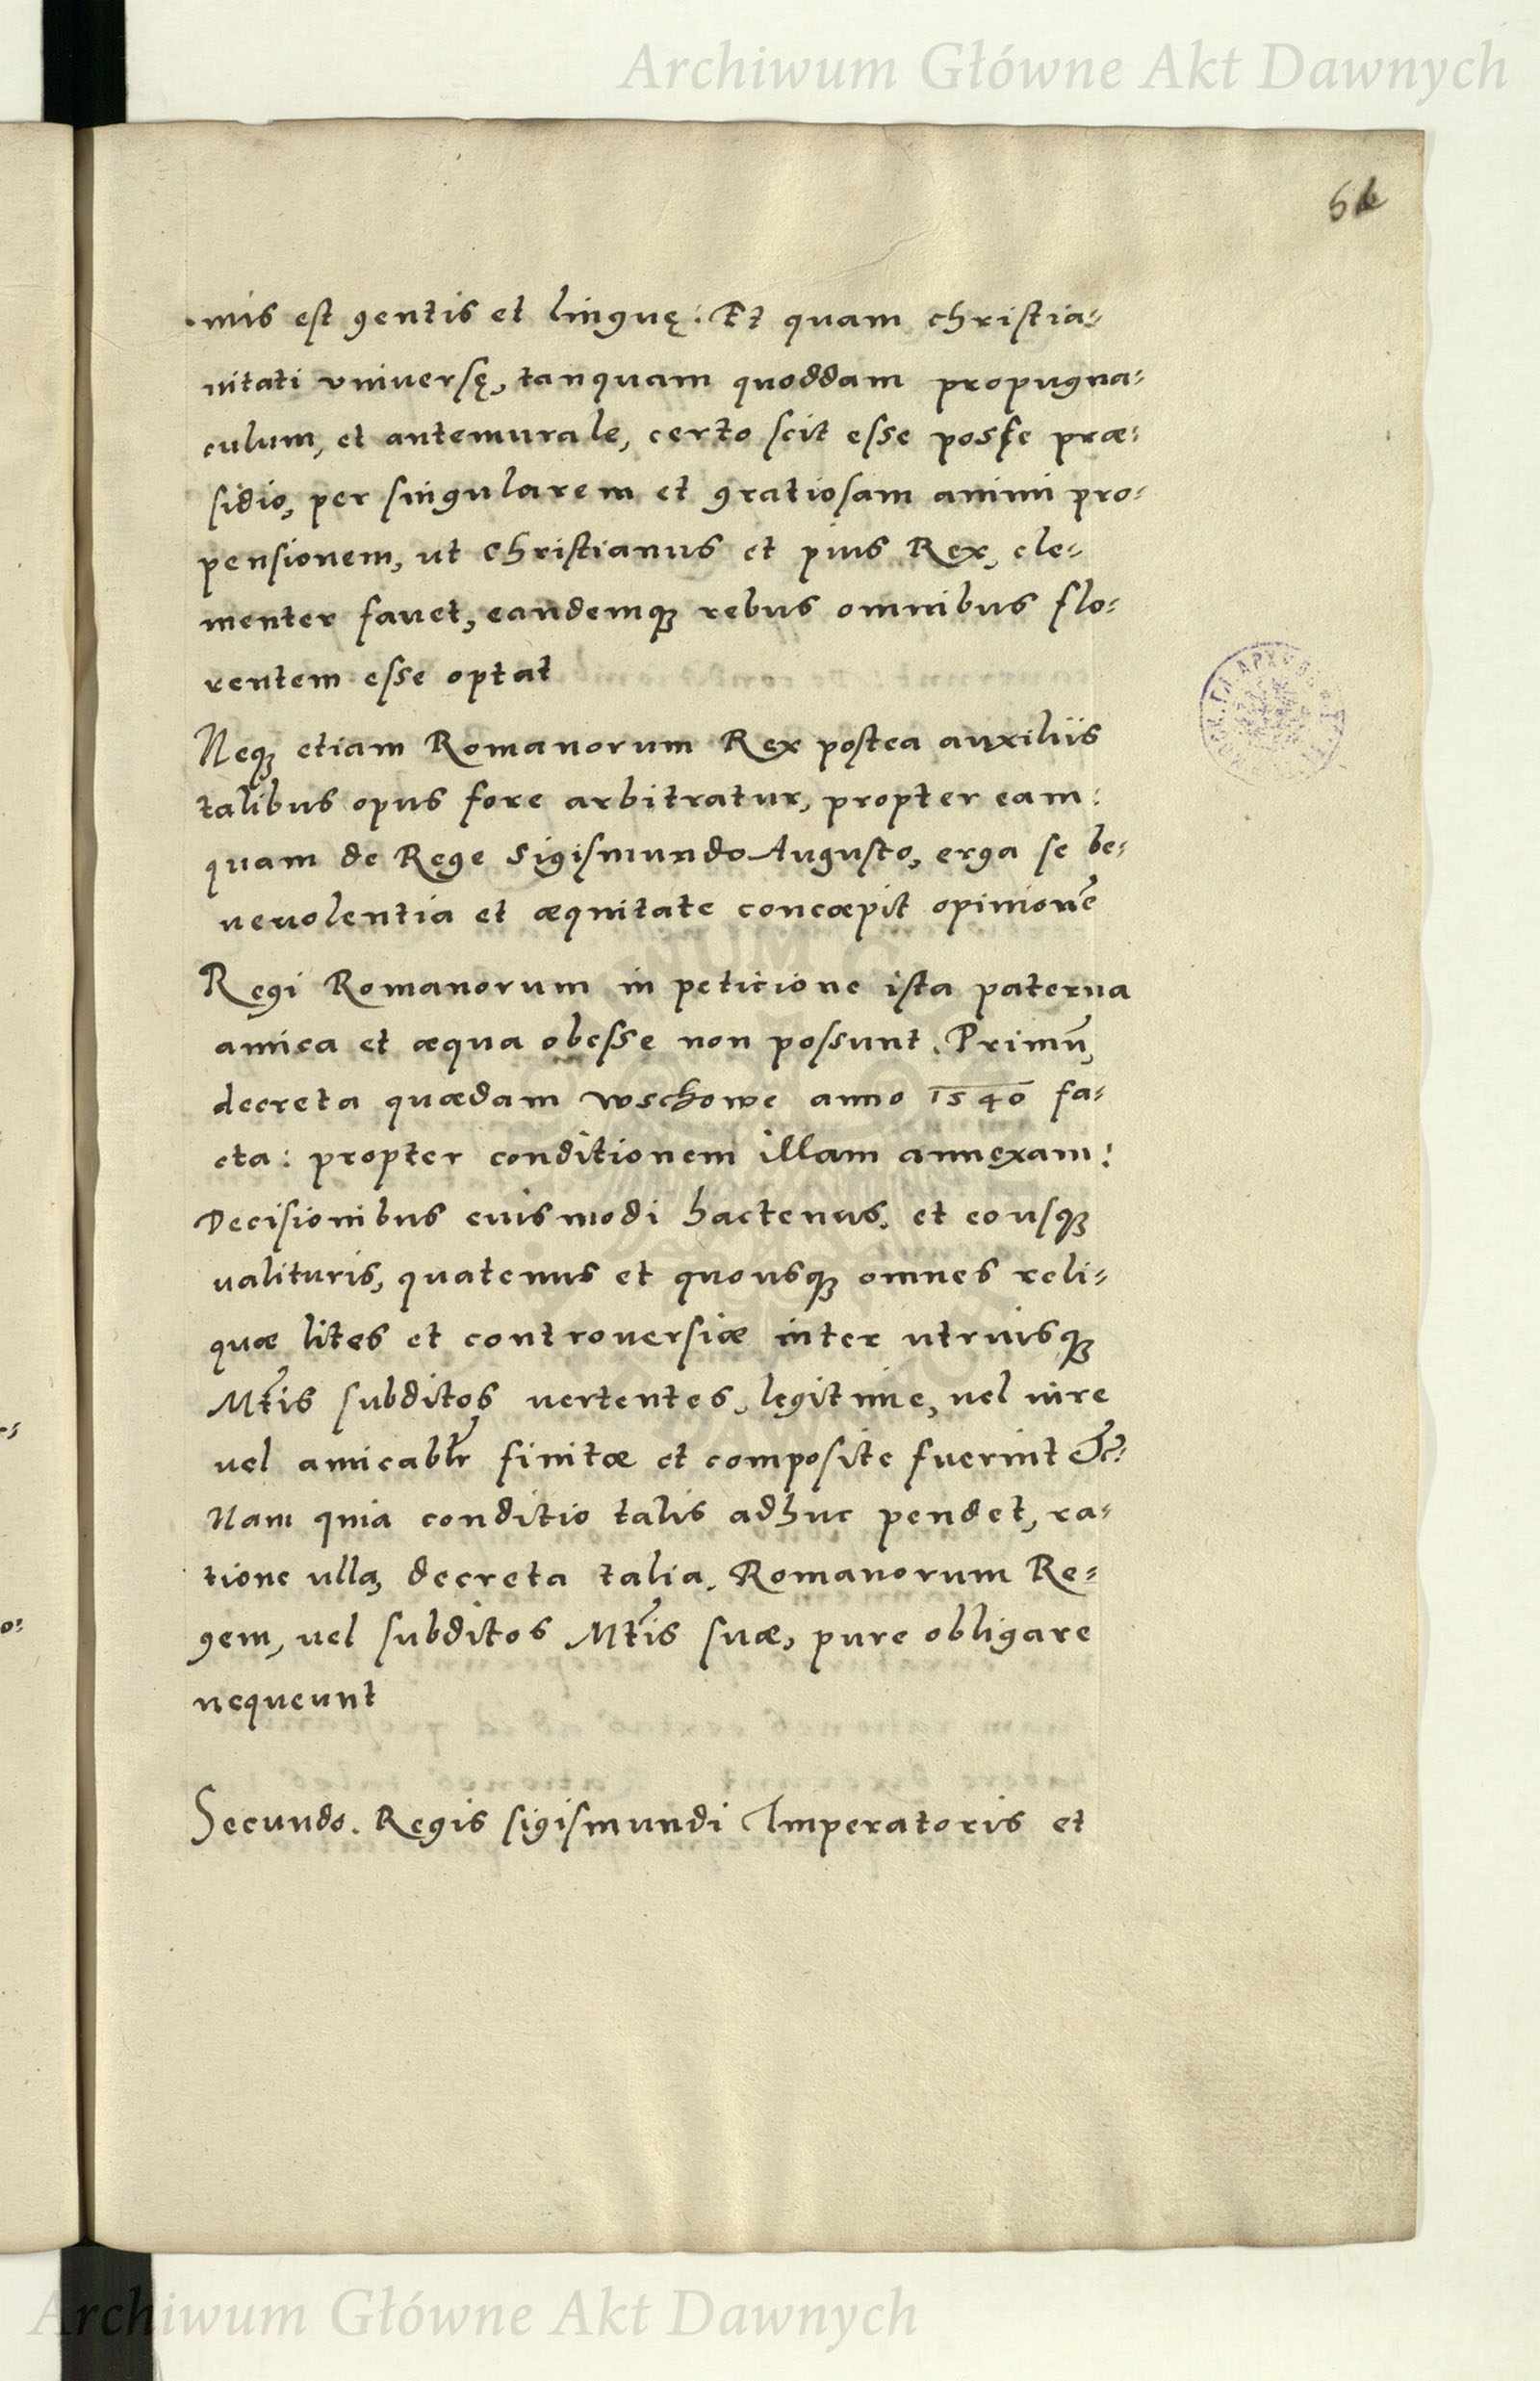 Archiwum Główne Akt Dawnych
mis est gentis et linguę: Et quam christia-
nitati vniuersę, tanquam quoddam propugna-
culum, et antemurale, certo scit esse posse præ-
sidio, per singularem et gratiosam animi pro-
pensionem, ut Christianus et pius Rex, cle-
menter fauet, eandemq₃ rebus omnibus flo-
rentem esse optat
Neq₃ etiam Romanorum Rex postea auxiliis
talibus opus fore arbitratur, propter eam:
quam de Rege Sigismundo Augusto, erga se be-
neuolentia et æquitate concœpit opinionẽ
Regi Romanorum in peticione ista paterna
amica et æqua obesse non possunt. Primũ,
decreta quædam wschowe anno 1540 fa-
cta: propter conditionem illam annexam:
Decisionibus euismodi hactenus, et eousq₃
ualituris, quatenus et quousq₃ omnes reli-
quæ lites et controuersiæ inter utriusq₃
Mt̃is subditos uertentes, legitime, uel iure
uel amicabl̃r finitæ et composite fuerint &c̃:
Nam quia conditio talis adhuc pendet, ra-
tione ulla, decreta talia, Romanorum Re-
gem, uel subditos Mt̃is suæ, pure obligare
nequeunt
Secundo. Regis sigismundi Imperatoris et
Archiwum Główne Akt Dawnych